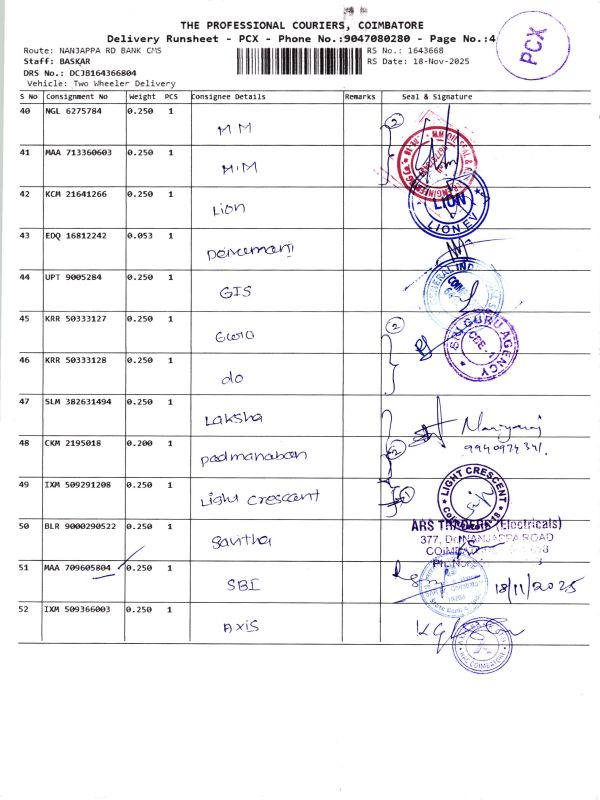 THE PROFESSIONAL COURIERS, COIMBATORE
Delivery Runsheet - PCX - Phone No.:9047080280 - Page No.:4
PCX
Route: NANJAPPA RD BANK CMS
RS No.: 1643668
Staff: BASKAR
RS Date: 18-Nov-2025
DRS No.: DCJB164366804
Vehicle: Two Wheeler Delivery
S No Consignment No Weight PCS Consignee Details Remarks Seal & Signature
40 NGL 6275784 0.250 1 MM 2
41 MAA 713360603 0.250 1 M.M
42 KCM 21641266 0.250 1 Lion
LION
LION EV
43 EDQ 16812242 0.053 1 Deivamani
44 UPT 9005284 0.250 1 GIS
45 KRR 50333127 0.250 1 2
SRI GURU AGENCY
CBE - 1
46 KRR 50333128 0.250 1 do
47 SLM 382631494 0.250 1 Laksha
48 CKM 2195018 0.200 1 padmanaban 2
49 IXM 509291208 0.250 1 Light crescent 1
LIGHT CRESCENT
50 BLR 9000290522 0.250 1 Santha
ARS TRADERS (Electricals)
377, Dr. NANJAPPA ROAD
51 MAA 709605804 0.250 1 SBI 18/11/2025
52 IXM 509366003 0.250 1 Axis